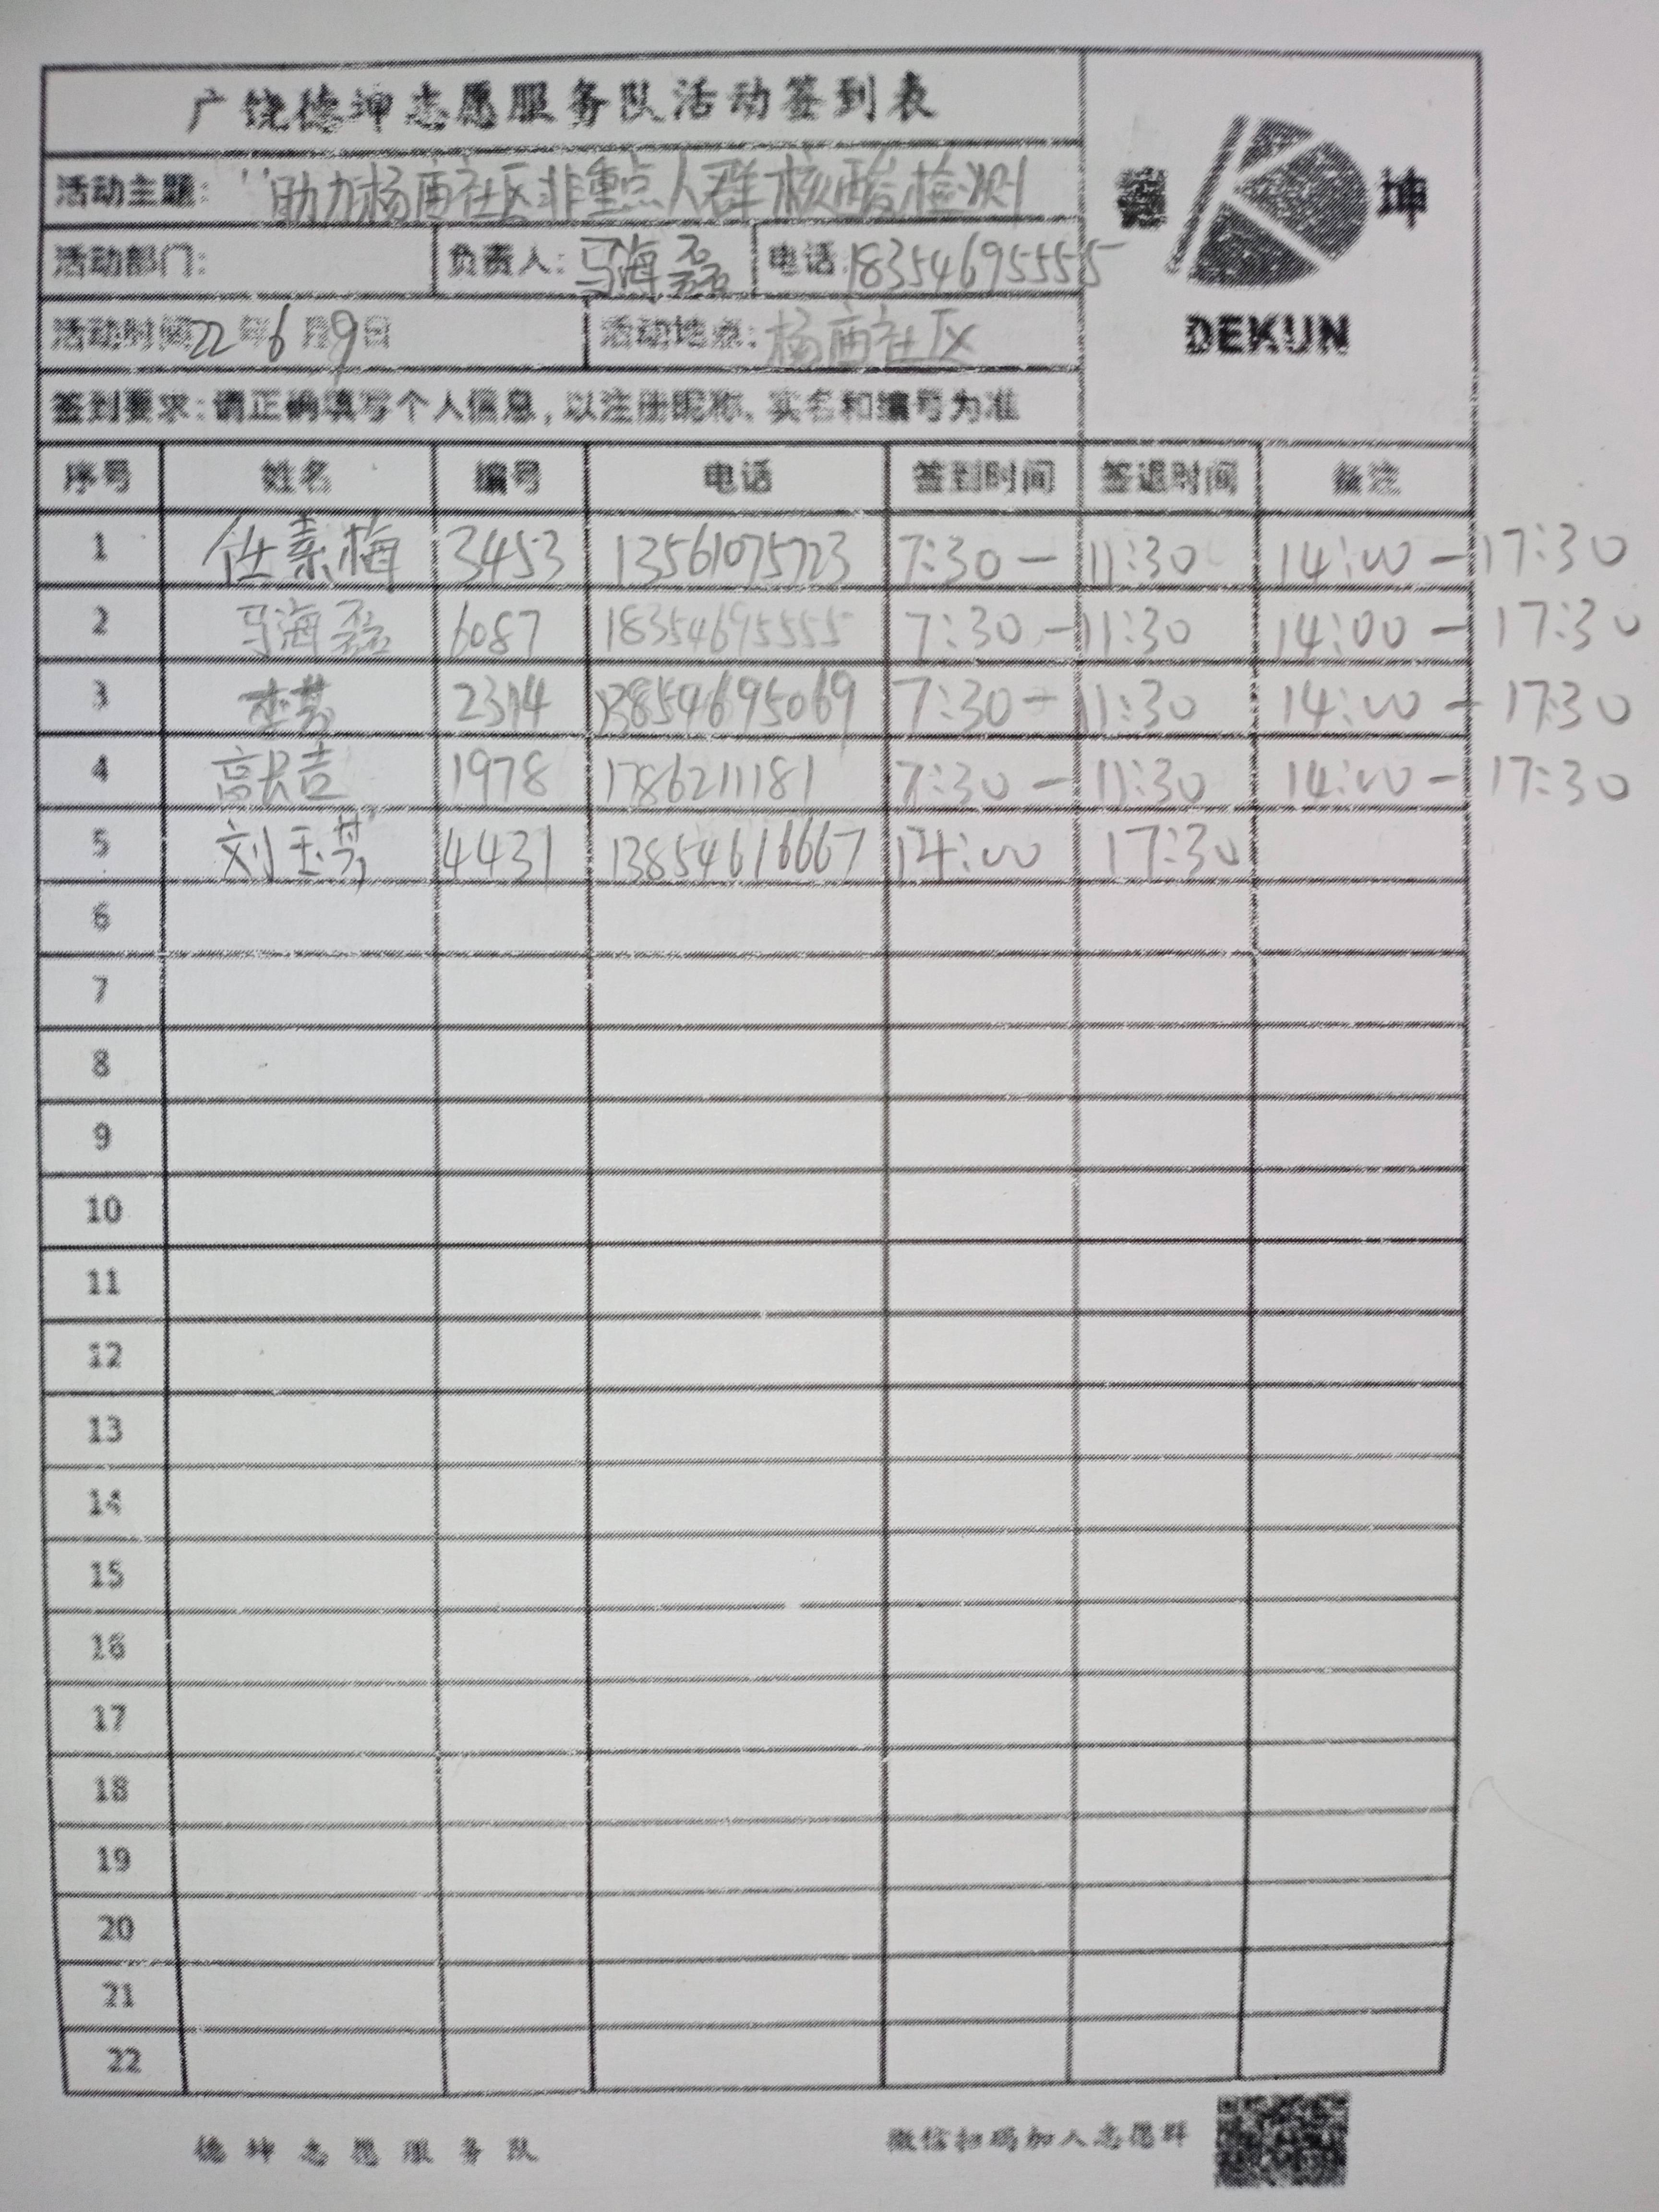 广饶德坤志愿服务队活动签到表
活动主题: “助力杨庙社区非重点人群核酸检测
德 坤
活动部门: 负责人: 马海磊 电话: 18354695555
DEKUN
活动时间 22 年 6 月 9 日 活动地点: 杨庙社区
签到要求: 请正确填写个人信息, 以注册昵称、实名和编号为准
序号 姓名 编号 电话 签到时间 签退时间 备注
1 任素梅 3453 13561075723 7:30 — 11:30 14:00 — 17:30
2 马海磊 6087 18354695555 7:30 — 11:30 14:00 — 17:30
3 李芳 2314 13854695069 7:30 — 11:30 14:00 — 17:30
4 高长吉 1978 1786211181 7:30 — 11:30 14:00 — 17:30
5 刘玉芹 4431 13854616667 14:00 17:30
6
7
8
9
10
11
12
13
14
15
16
17
18
19
20
21
22
德坤志愿服务队 微信扫码加入志愿群